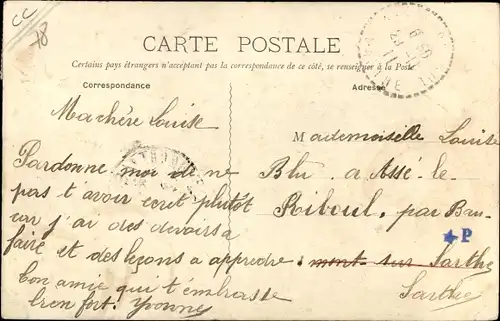 CC
78
CARTE POSTALE
Certains pays étrangers n'acceptant pas la correspondance de ce côté, se renseigner à la Poste
Correspondance
Adresse
Ma chère Louise
Pardonne moi de ne
pas t avoir ecrit plutôt
car j'ai des devoirs a
faire et des leçons a apprendre.
ton amie qui t'embrasse
bien fort. Yvonne
Mademoiselle Louise
Blu a Assé-le-
Riboul, par Beau
mont sur Sarthe
Sarthe
P